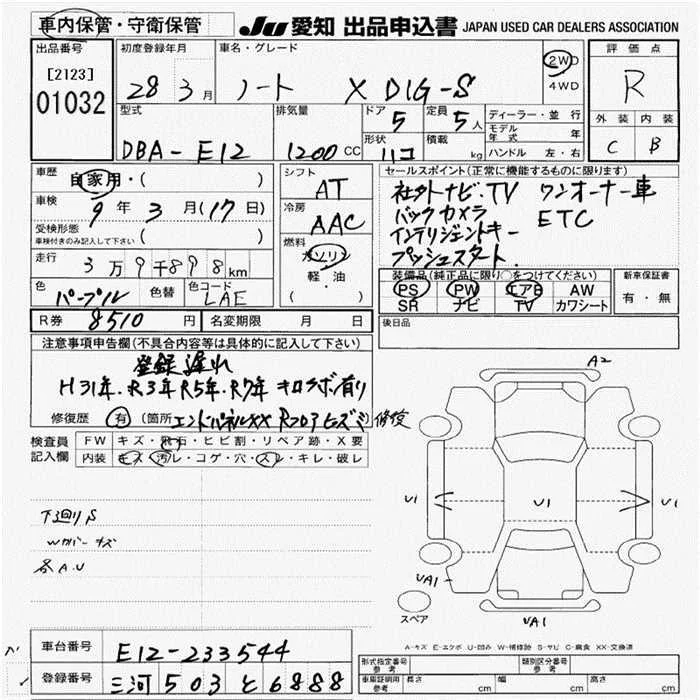 車内保管・守衛保管
JU 愛知 出品申込書 JAPAN USED CAR DEALERS ASSOCIATION
出品番号
[2123]
01032
初度登録年月
28 3月
車名・グレード
ノート X DIG-S
2WD
4WD
評価点
R
外装 内装
C B
型式
DBA-E12
排気量
1200 CC
ドア
5
定員
5人
形状
ハコ
積載
kg
ディーラー・並行
モデル年式 年
ハンドル 左・右
車歴
自家用・( )
車検
9年3月(17日)
受検形態
車検付きのみ記入して下さい ( )
走行
3万9千898km
色
パープル
色替
色コード
LAE
シフト
AT
冷房
AAC
燃料
ガソリン
軽・油
( )
セールスポイント(正常に機能するものに限ります)
社外ナビ.TV ワンオーナー車
バックカメラ ETC
インテリジェントキー
プッシュスタート.
装備品(純正品に限り○をつけてください)
PS PW エアB AW
SR ナビ TV カワシート
新車保証書
有・無
後日品
R券 8510円
名変期限 月 日
注意事項申告欄(不具合内容等は具体的に記入して下さい)
登録遅れ
H31年.R3年R5年.R7年 キロサボ有り
修復歴 有 (箇所 エンドパネルXX Rフロアヒズミ修復
検査員
記入欄
FW キズ・飛石・ヒビ割・リペア跡・X要
内装 キズ・汚レ・コゲ・穴・スレ・キレ・破レ
下廻りS
Wカバーキズ
各A.U
A2
U1
U1
U1
UA1
UA1
スペア
A-キズ E-エクボ U-凹み W-補修跡 S-サビ C-腐食 XX-交換済
車台番号 E12-233544
登録番号 三河 503 と 6888
形式指定番号
参考
類別区分番号
参考
車庫証明用
参考
長さ cm 幅 cm 高さ cm